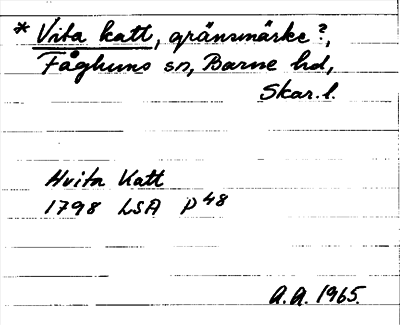 * Vita katt, gränsmärke?,
Fåglums sn, Barne hd,
Skar. l.
Hvita Katt
1798 LSA P48
A.A. 1965.